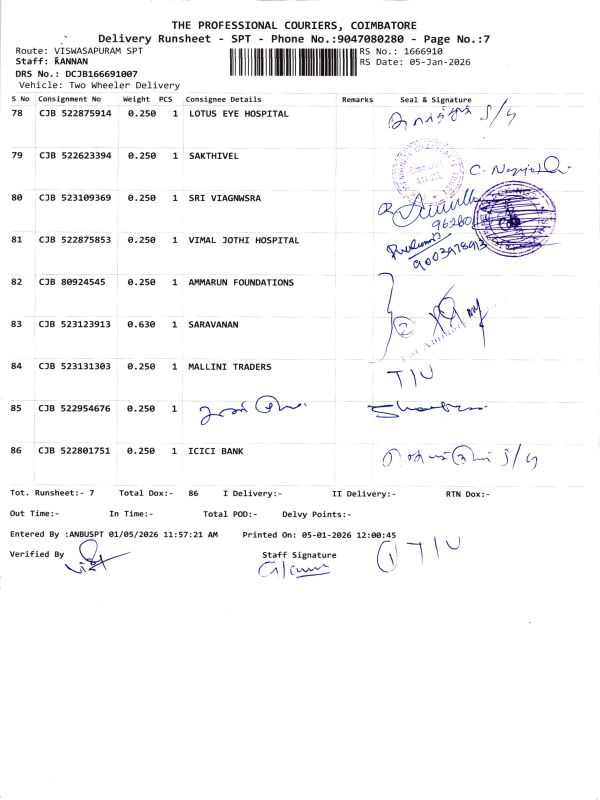 THE PROFESSIONAL COURIERS, COIMBATORE
Delivery Runsheet - SPT - Phone No.:9047080280 - Page No.:7
Route: VISWASAPURAM SPT RS No.: 1666910
Staff: KANNAN RS Date: 05-Jan-2026
DRS No.: DCJB166691007
Vehicle: Two Wheeler Delivery
S No Consignment No Weight PCS Consignee Details Remarks Seal & Signature
78 CJB 522875914 0.250 1 LOTUS EYE HOSPITAL
79 CJB 522623394 0.250 1 SAKTHIVEL
80 CJB 523109369 0.250 1 SRI VIAGNWSRA
81 CJB 522875853 0.250 1 VIMAL JOTHI HOSPITAL
9003978913
82 CJB 80924545 0.250 1 AMMARUN FOUNDATIONS
83 CJB 523123913 0.630 1 SARAVANAN
84 CJB 523131303 0.250 1 MALLINI TRADERS T/U
85 CJB 522954676 0.250 1
86 CJB 522801751 0.250 1 ICICI BANK
Tot. Runsheet:- 7 Total Dox:- 86 I Delivery:- II Delivery:- RTN Dox:-
Out Time:- In Time:- Total POD:- Delvy Points:-
Entered By :ANBUSPT 01/05/2026 11:57:21 AM Printed On: 05-01-2026 12:00:45
Verified By Staff Signature T/U